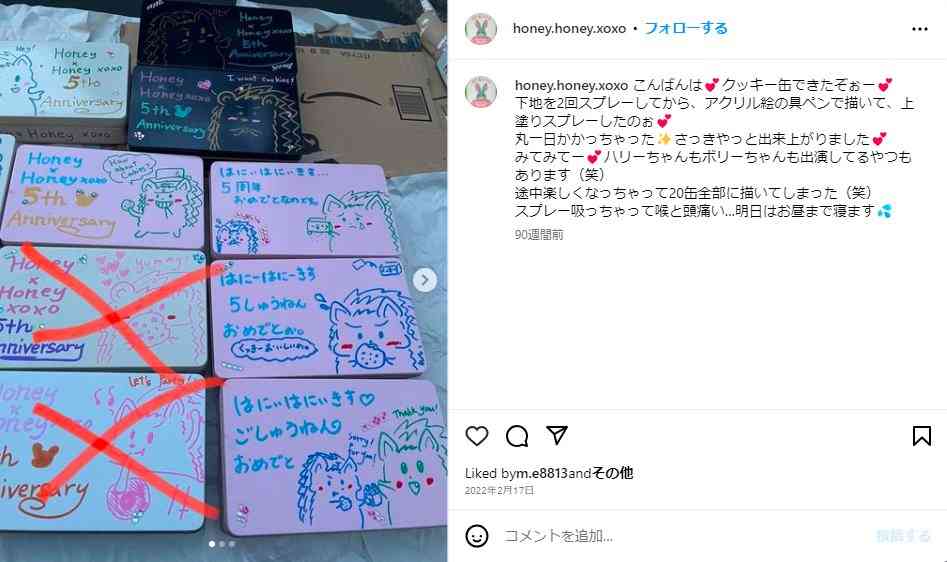 Hey!
Honey
×
Honey xoxo
5th
Anniversary
Honey
×
Honey xoxo
5th
Anniversary
Honey
×
Honey xoxo
5th
Anniversary
I want cookies!
Honey
×
Honey xoxo
5th
Anniversary
はにぃはにぃきす...
5周年
おめでとなのです。
Honey
×
Honey
xoxo
5th
Anniversary
yummy!
はにーはにーきす
5しゅうねん
おめでとの。
Honey
×
Honey xoxo
5th
Anniversary
Let's Party!
はにぃはにぃきす♡
ごしゅうねん
おめでと
Sorry!
for you!
Thank you!
honey.honey.xoxo • フォローする
honey.honey.xoxo こんばんは💕クッキー缶できたぞぉー💕
下地を2回スプレーしてから、アクリル絵の具ペンで描いて、上
塗りスプレーしたのぉ💕
丸一日かかっちゃった✨さっきやっと出来上がりました💕
みてみてー💕ハリーちゃんもポリーちゃんも出演してるやつも
あります（笑）
途中楽しくなっちゃって20缶全部に描いてしまった（笑）
スプレー吸っちゃって喉と頭痛い...明日はお昼まで寝ます💦
90週間前
Liked bym.e8813andその他
2022年2月17日
コメントを追加...
投稿する